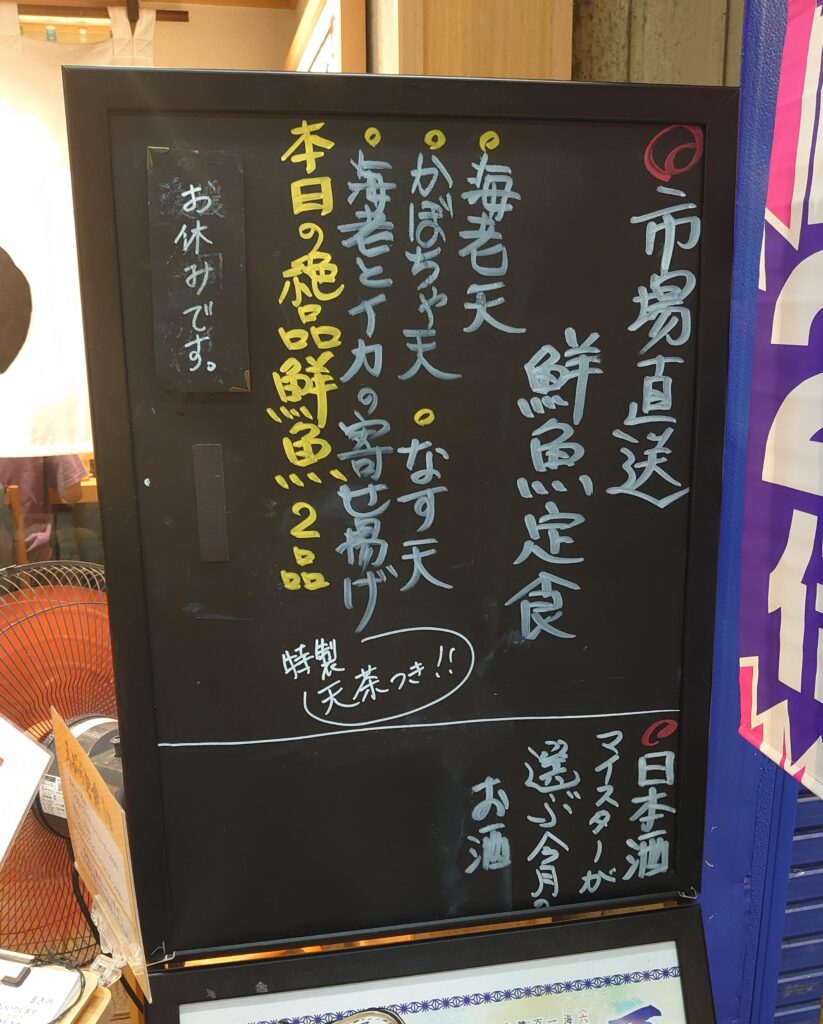 市場直送
鮮魚定食
海老天
かぼちゃ天 なす天
海老とイカの寄せ揚げ
本日の絶品鮮魚2品
特製
天茶つき!!
お休みです。
日本酒
マイスターが
選ぶ今月の
お酒